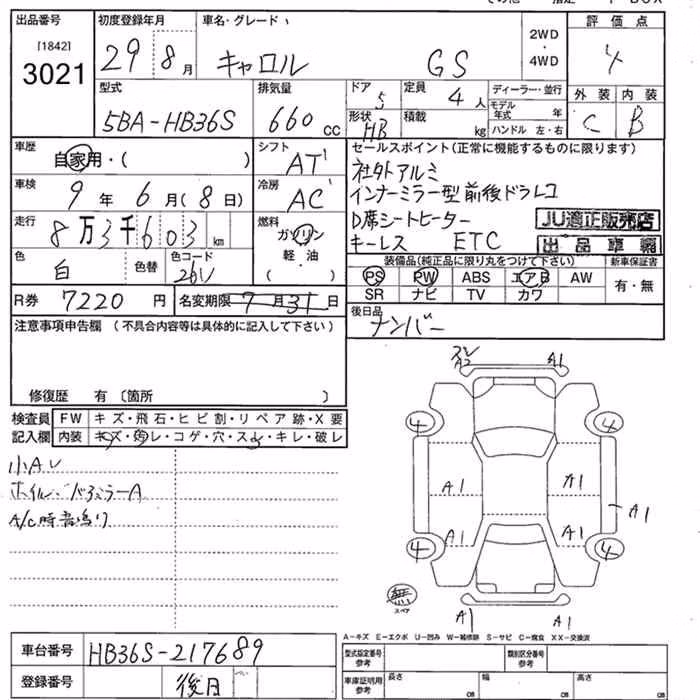 出品番号 初度登録年月 車名・グレード 評価点
[1842] 3021 29 8月 キャロル GS 2WD・4WD 4
型式 排気量 ドア 定員 ディーラー・並行 外装 内装
5BA-HB36S 660cc 5 4人 モデル年式 年 C B
形状 HB 積載 kg ハンドル 左・右
車歴 自家用・( ) シフト AT セールスポイント(正常に機能するものに限ります)
車検 9年6月(8日) 冷房 AC 社外アルミ
インナーミラー型前後ドラレコ
走行 8万3千603km 燃料 ガソリン 軽・油 ( ) D席シートヒーター JU適正販売店
キーレス ETC 出品車輌
色 白 色替 色コード 26U 装備品(純正品に限り丸をつけて下さい) 新車保証書
PS PW ABS エアB AW 有・無
SR ナビ TV カワ
R券 7220円 名変期限 7月31日 後日品
ナンバー
注意事項申告欄(不具合内容等は具体的に記入して下さい)
修復歴 有〔箇所 〕
検査員 FW キズ・飛石・ヒビ割・リペア跡・X要
記入欄 内装 キズ・汚レ・コゲ・穴・スレ・キレ・破レ
A2 A1
4 4
小AU
ホイル・ A
A/C時音鳴り
A1 A1 A1
A1 A1
4 4
無 スペア
A1 A1
A-キズ E-エクボ U-凹み W-補修跡 S-サビ C-腐食 XX-交換済
車台番号 HB36S-217689 型式指定番号 参考 類別区分番号 参考
登録番号 後日 車庫証明用 参考 長さ cm 幅 cm 高さ cm